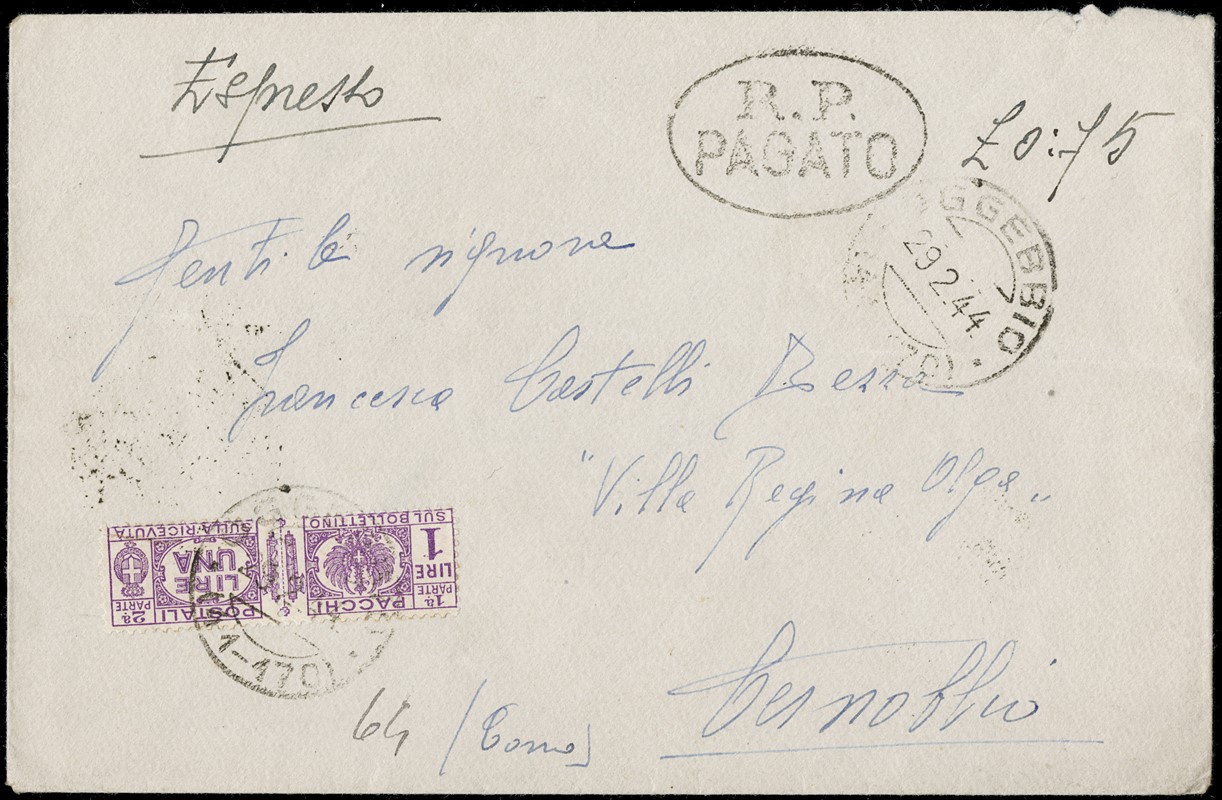 Espresso
R.P.
PAGATO
£ 0:75
GGEBBIO
29.2.44
Gentile signora
Francesca Castelli Bezza
"Villa Regina Olga"
SULLA RICEVUTA
SUL BOLLETTINO
LIRE
UNA
1
LIRE
2ª PARTE
POSTALI
PACCHI
1ª PARTE
1-170)
64 (Como)
Cernobbio